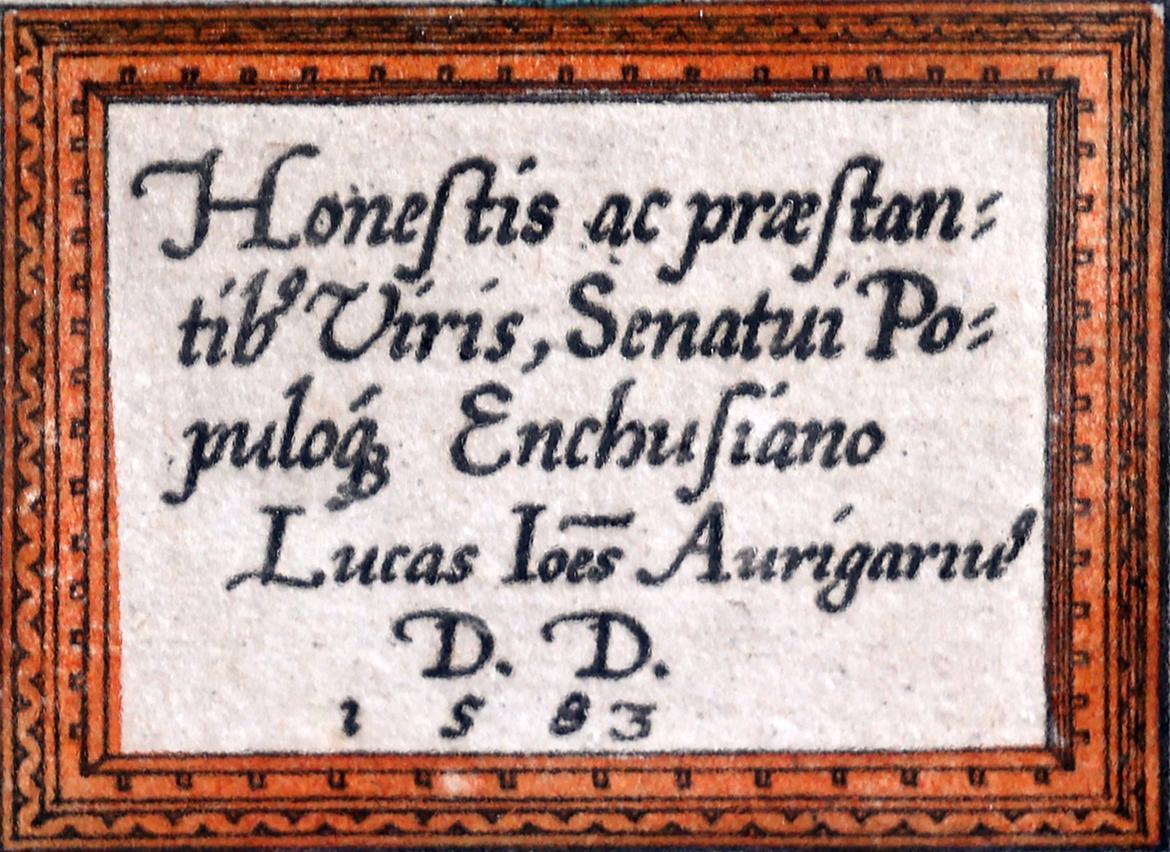 Honeſtis ac præſtan-
tibꝰ Viris, Senatui Po-
puloq́ꝫ Enchuſiano
Lucas Ioēs Aurigariuꝰ
D. D.
1583